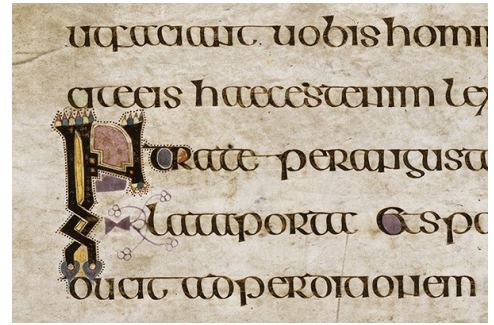 utfaciant uobis homin
citeeis haecestenim lex
INtrate perangusta
lataporta etspa
ducit adperditionem